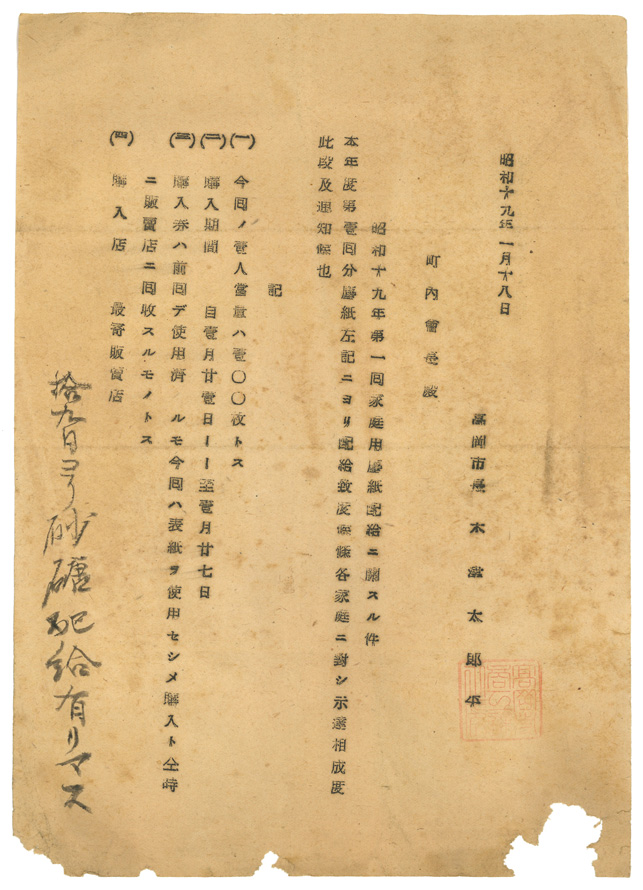 昭和十九年一月十八日
高岡市長 木 津 太 郎 平
町内會長殿
昭和十九年第一回家庭用塵紙配給ニ關スル件
本年度第壹回分塵紙左記ニヨリ配給致度候條各家庭ニ對シ示達相成度
此段及通知候也
記
(一) 今回ノ壹人當量ハ壹〇〇枚トス
(二) 購入期間 自壹月廿壹日ーー至壹月廿七日
(三) 購入券ハ前回デ使用濟 ルモ今回ハ表紙ヲ使用セシメ購入ト仝時
ニ販賣店ニ回收スルモノトス
(四) 購入店 最寄販賣店
拾九日ヨリ砂礦配給有リマス